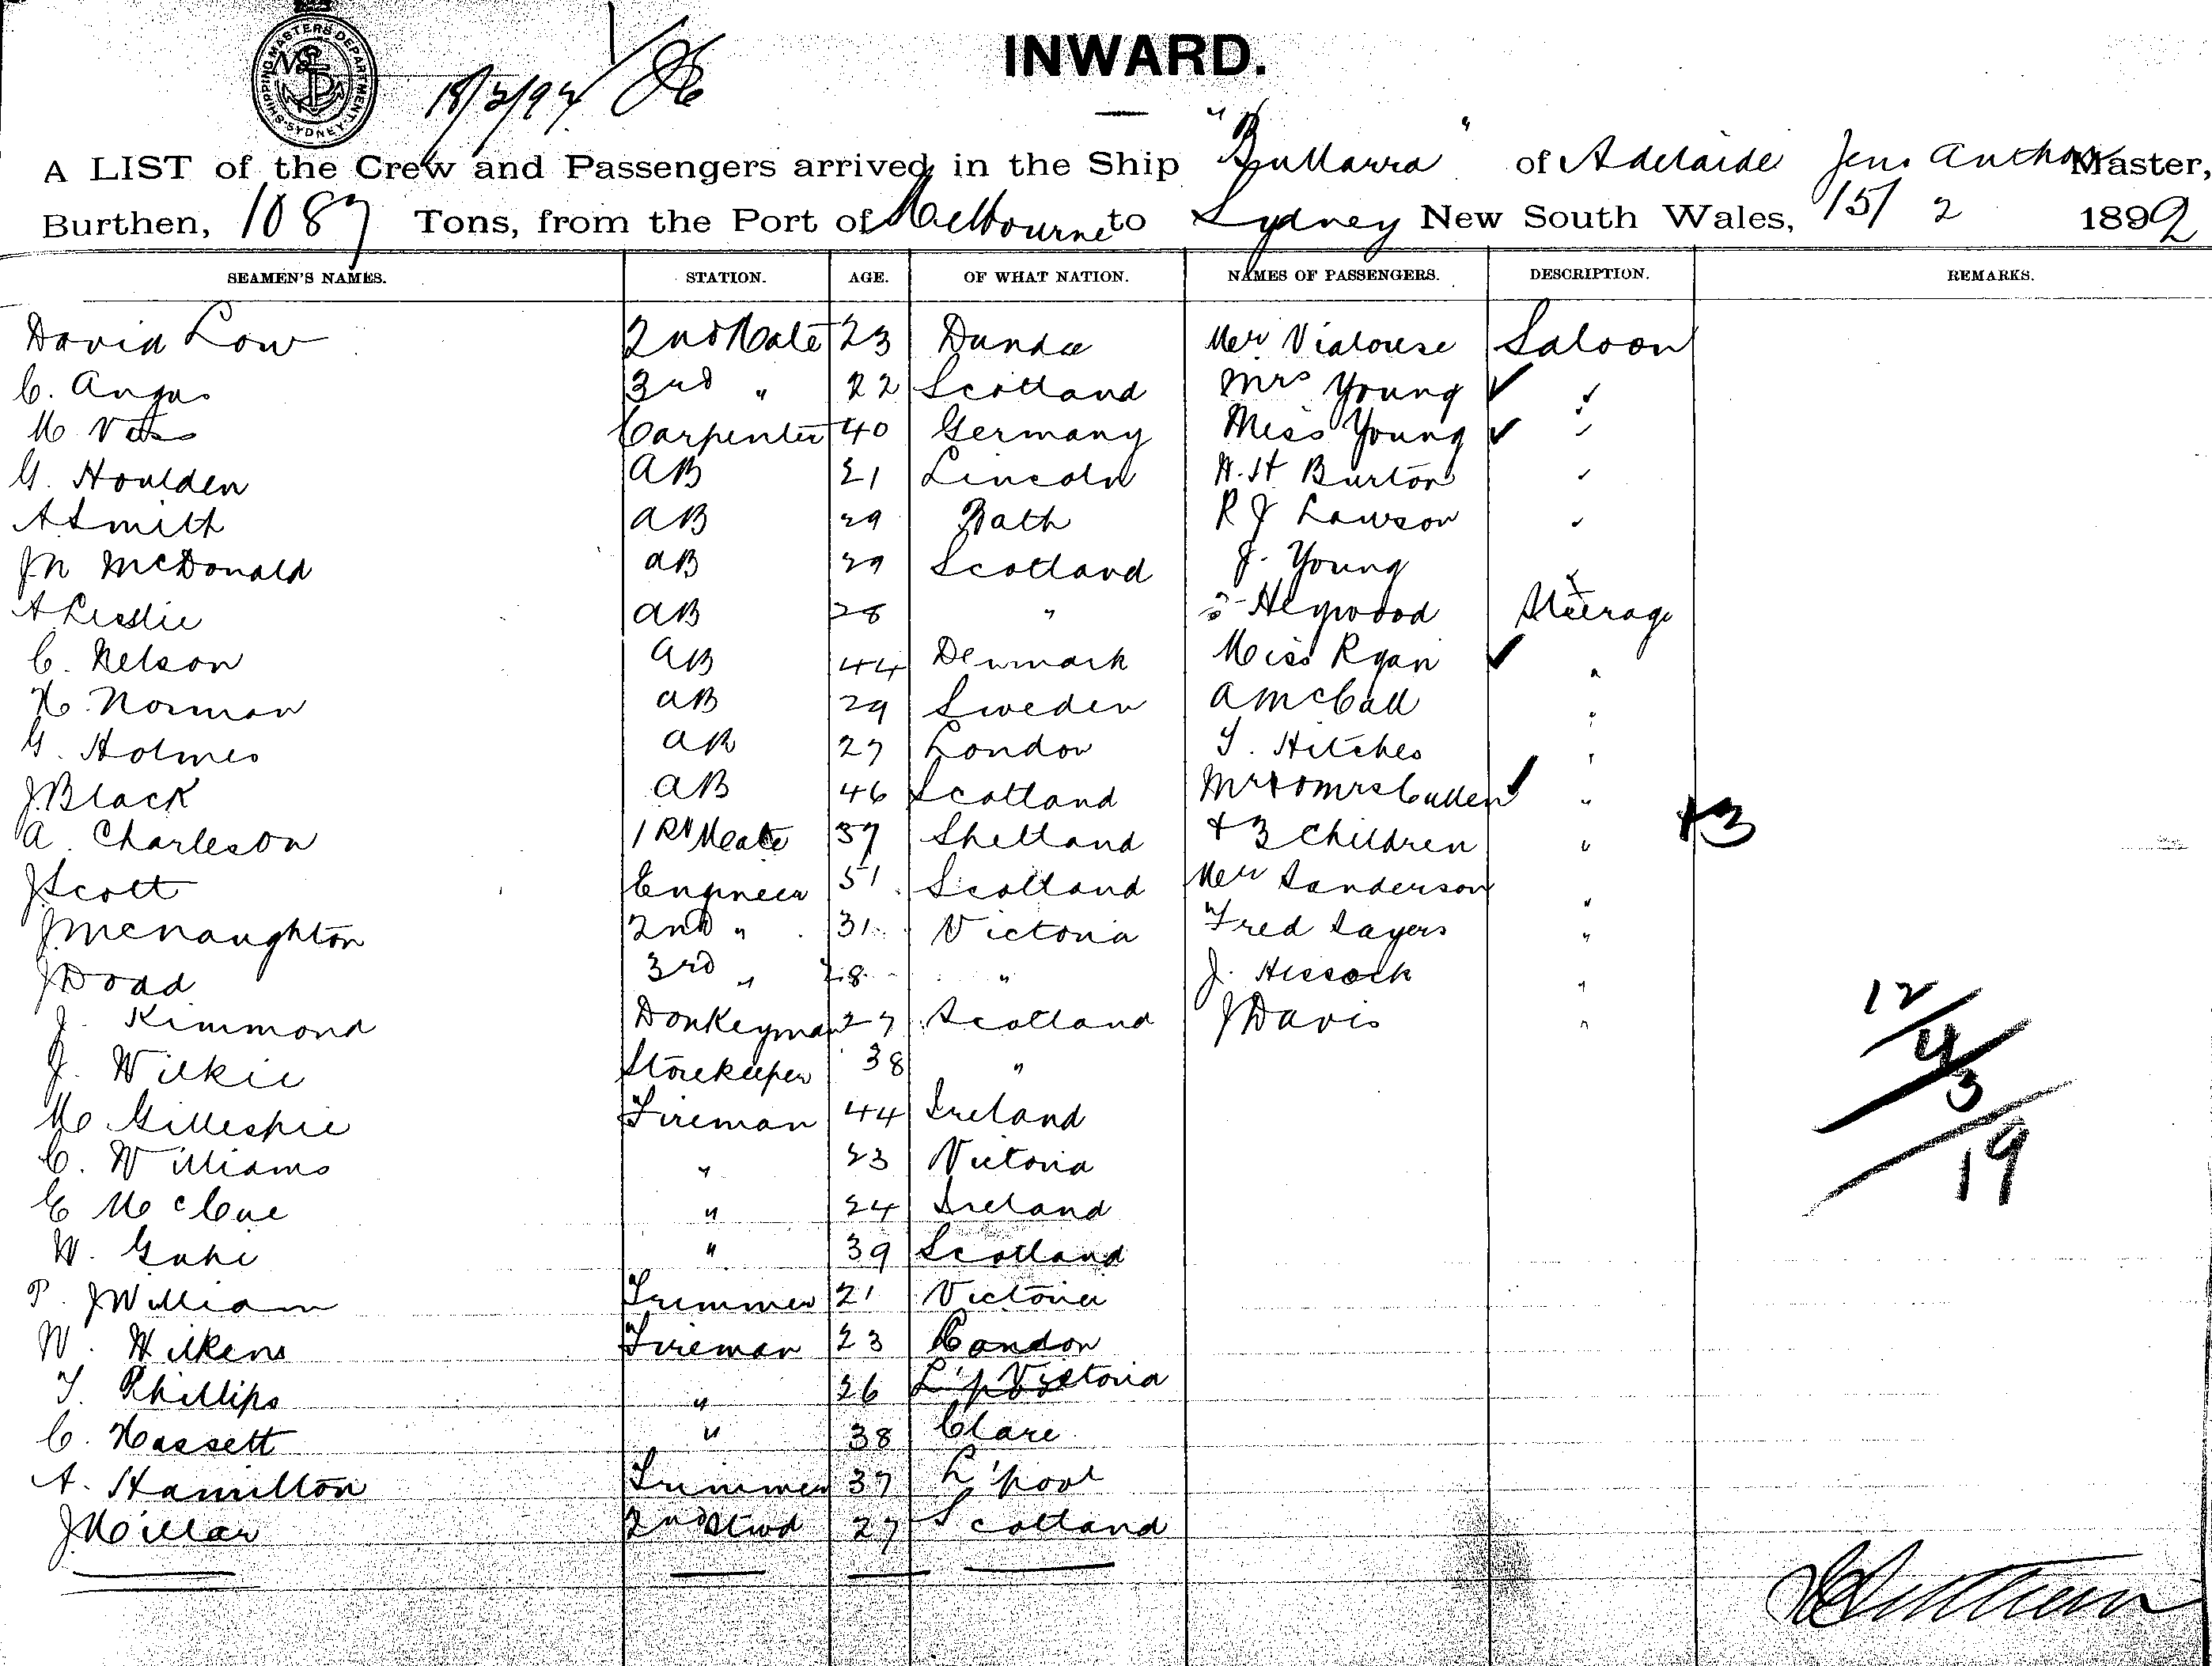 SHIPPING MASTERS DEPARTMENT SYDNEY
INWARD.
A LIST of the Crew and Passengers arrived in the Ship "Bullarra" of Adelaide Jens Master,
Burthen, 1087 Tons, from the Port of Melbourne to Sydney New South Wales, 15/ 2 1892
SEAMEN'S NAMES. STATION. AGE. OF WHAT NATION. NAMES OF PASSENGERS. DESCRIPTION. REMARKS.
David Low 2nd Mate 23 Dundee Saloon
C. Angus 3rd " 22 Scotland Mrs Young "
M Carpenter 40 Germany Miss Young "
G. Houlden AB 21 Lincoln H. H Burton "
A Smith AB 29 Bath R J Lawson "
Jn McDonald AB 29 Scotland J. Young
A Leslie AB 28 " Heywood Steerage
C. Nelson AB 44 Denmark Miss Ryan "
H. Norman AB 29 Sweden A McCall "
G. Holmes AB 27 London T. Hitches "
J. Black AB 46 Scotland Mr & Mrs Cullen "
A. Charleson 1st Mate 37 Shetland + 3 Children " +3
J Scott Engineer 51 Scotland Sanderson "
J McNaughton 2nd " 31 Victoria Fred Sayers "
J Dodd 3rd " 28 " J. Hissock "
J. Kimmond Donkeyman 27 Scotland J Davis "
J. Wilkie Storekeeper 38 "
M Gillespie Fireman 44 Ireland
C. Williams " 23 Victoria
E McCue " 24 Ireland
W. " 39 Scotland
P. J William Trimmer 21 Victoria
W. Wilkens Fireman 23 London
T. Phillips " 26 L'pool Victoria
C. Hassett " 38 Clare
A. Hamilton Trimmer 37 L'pool
J Millar 2nd Stwd 27 Scotland
12/
4/
3/
19